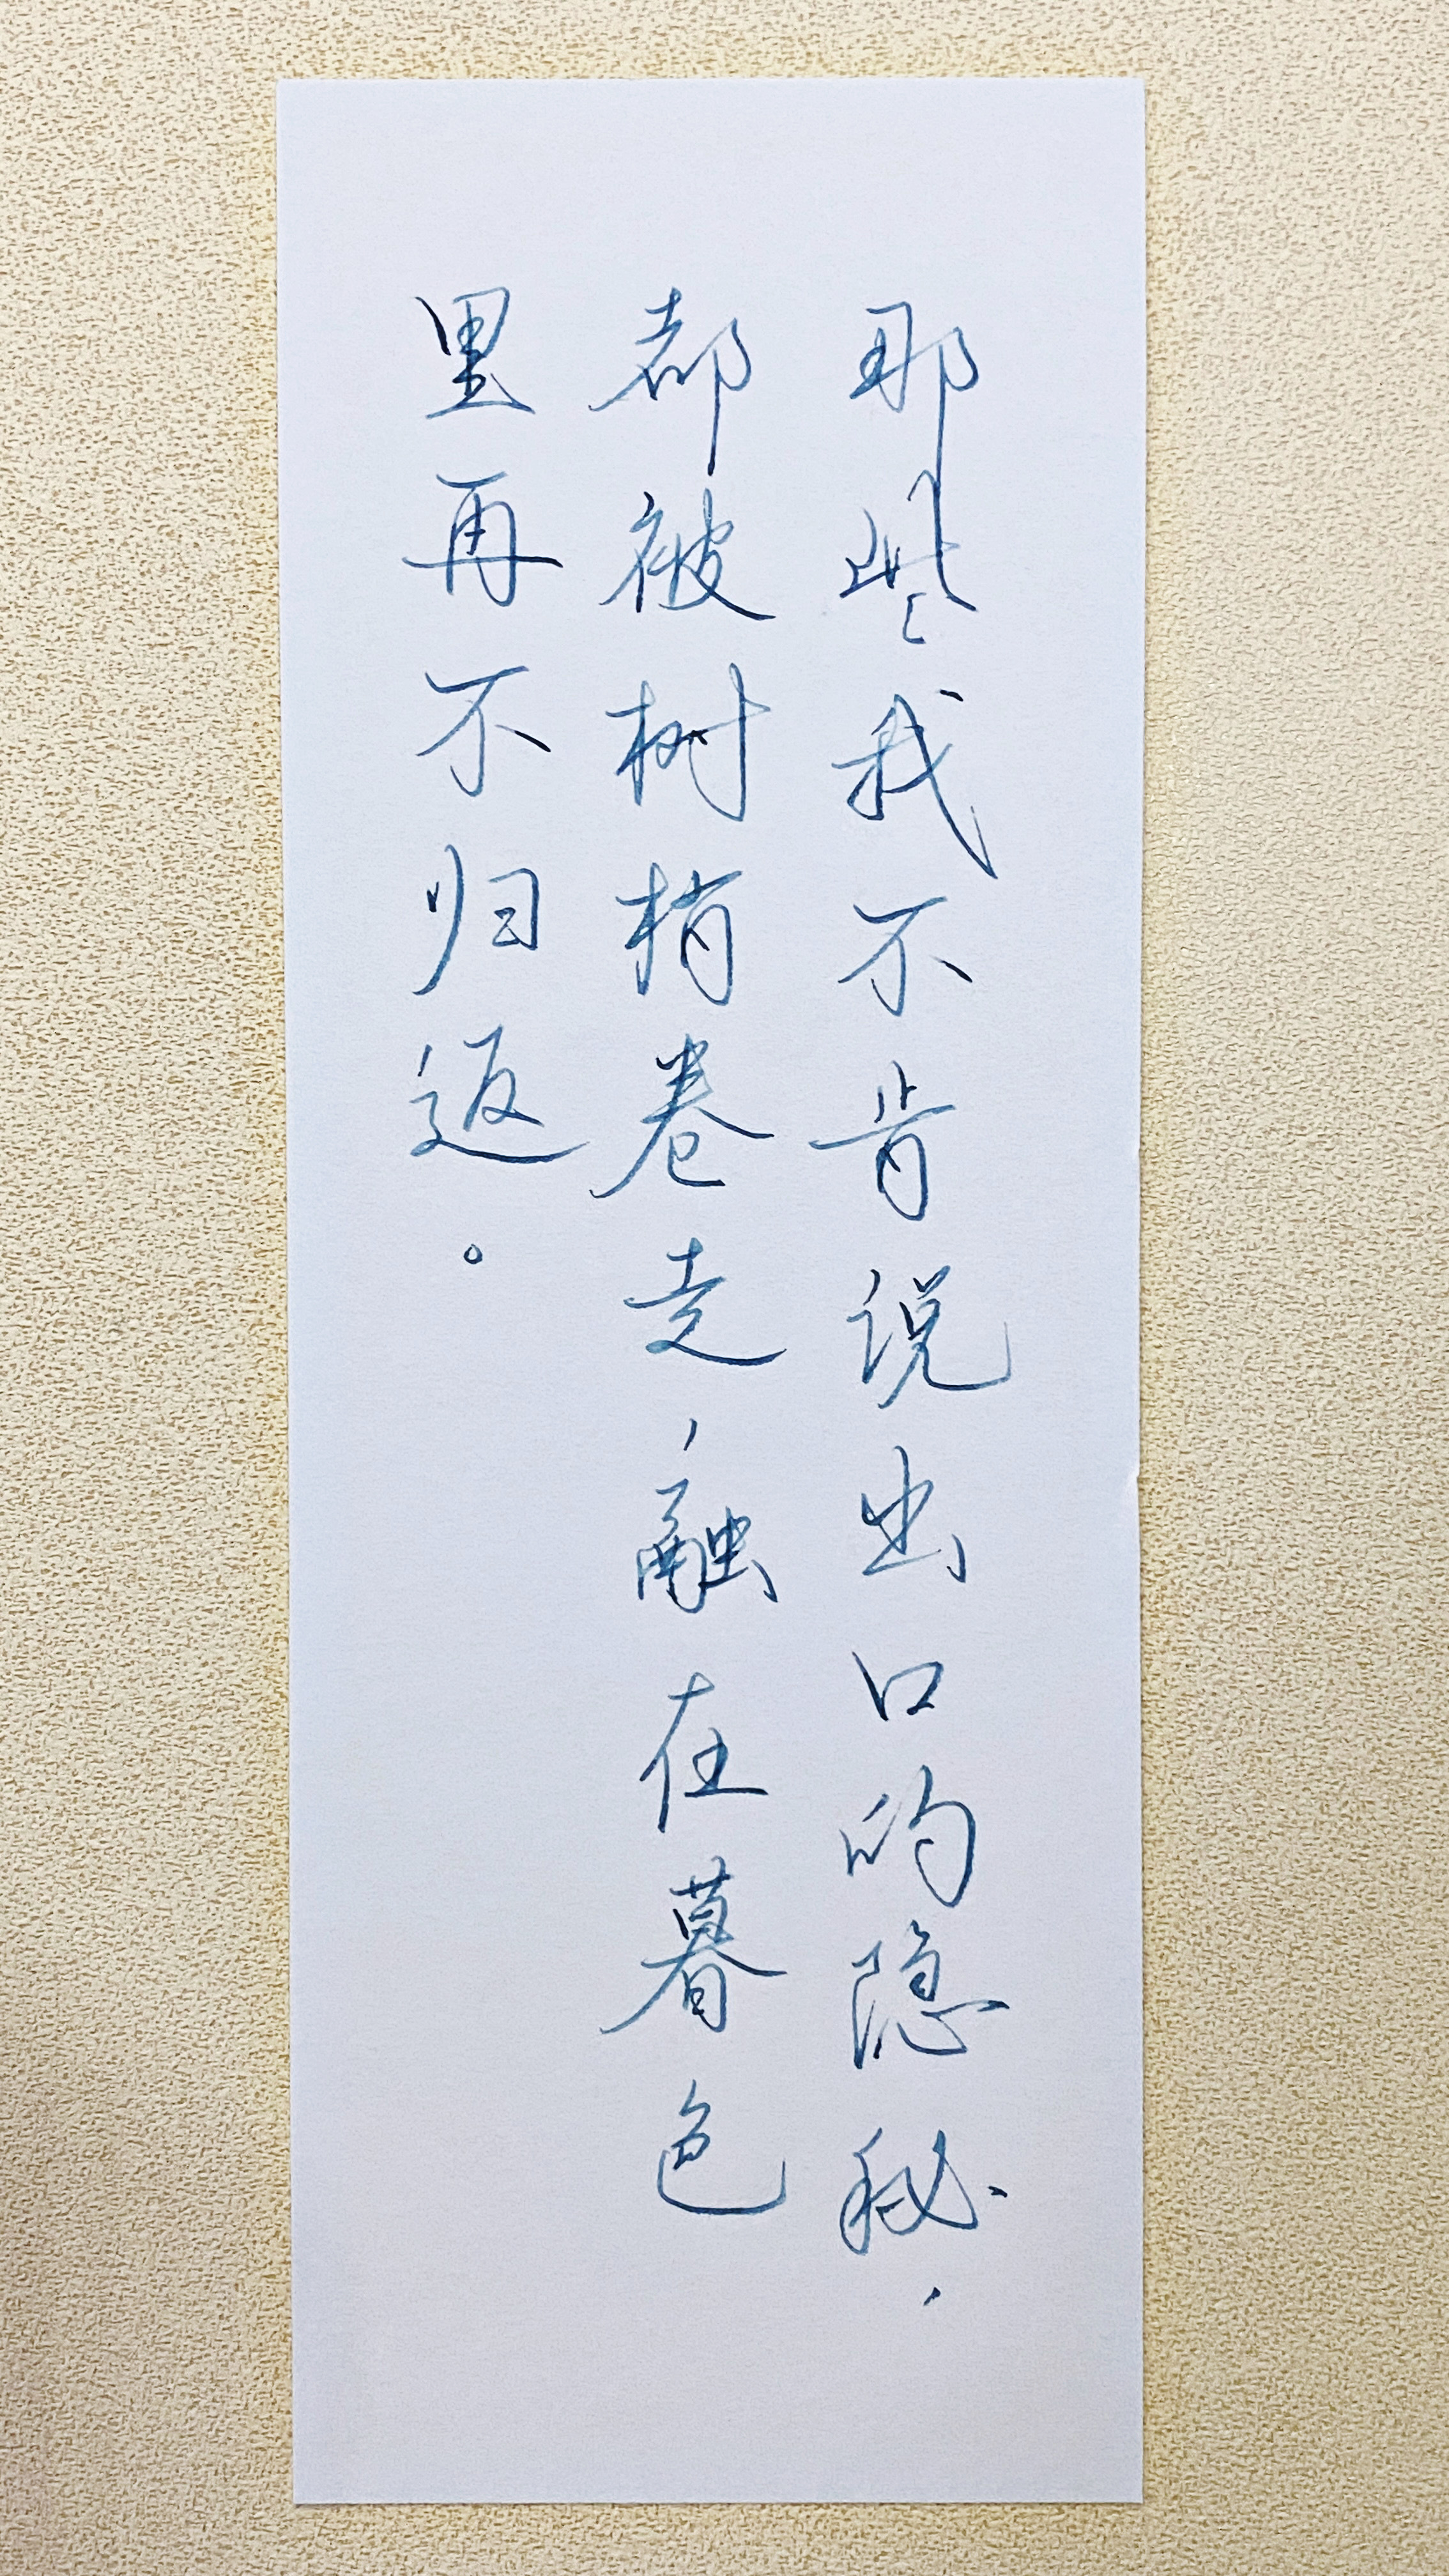 那些我不肯说出口的隐秘，
都被树梢卷走，融在暮色
里再不归返。